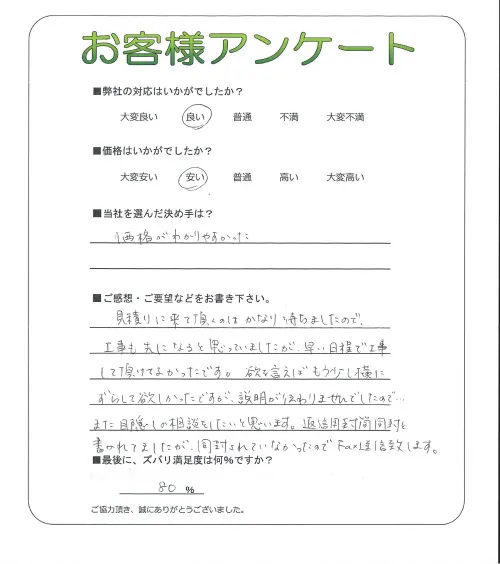 お客様アンケート
■弊社の対応はいかがでしたか？
大変良い 良い 普通 不満 大変不満
■価格はいかがでしたか？
大変安い 安い 普通 高い 大変高い
■当社を選んだ決め手は？
価格がわかりやすかった
■ご感想・ご要望などをお書き下さい。
見積りに来て頂くのはかなり待ちましたので、
工事も先になると思っていましたが、早い日程で工事
して頂けてよかったです。 欲を言えばもう少し横に
ずらして欲しかったですが、説明が伝わりませんでしたので…
また目隠しの相談をしたいと思います。返信用封筒同封と
書かれてましたが、同封されていなかったのでFax送信致します。
■最後に、ズバリ満足度は何%ですか？
80 %
ご協力頂き、誠にありがとうございました。